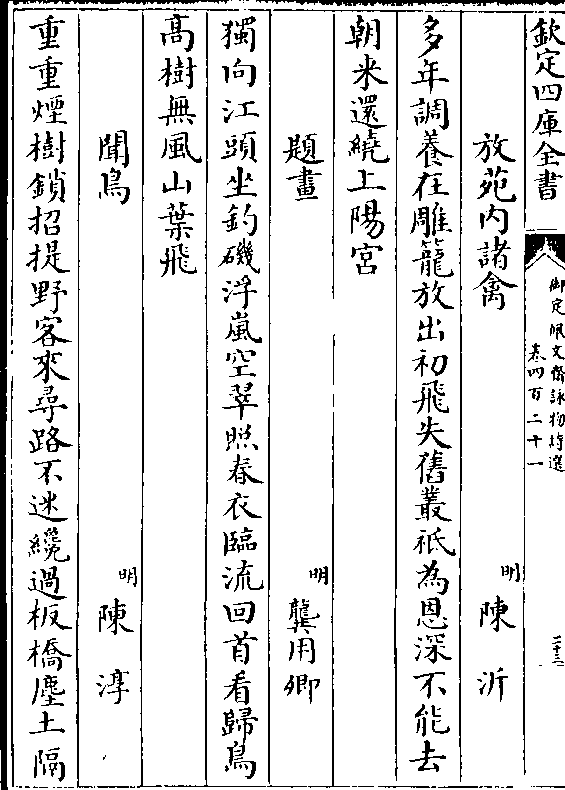 欽定四庫全書
御定佩文齋詠物詩選
卷四百二十一
二十三
放苑內諸禽
明
陳沂
多年調養在雕籠放出初飛失舊叢祇為恩深不能去
朝來還繞上陽宮
題畫
明
龔用卿
獨向江頭坐釣磯浮嵐空翠照春衣臨流回首看歸鳥
高樹無風山葉飛
聞鳥
明
陳淳
重重煙樹鎖招提野客來尋路不迷纔過板橋塵土隔